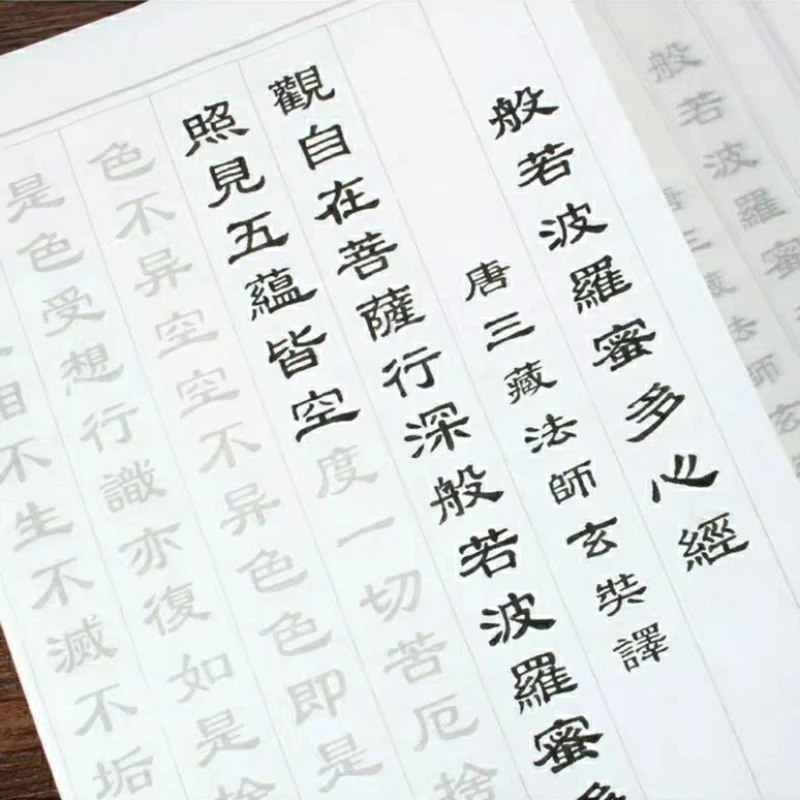 般若波羅蜜
三藏法師玄
般若波羅蜜多心經
唐三藏法師玄奘譯
觀自在菩薩行深般若波羅蜜多
照見五蘊皆空度一切苦厄捨
色不异空空不异色色即是
是色受想行識亦復如是捨
相不生不滅不垢